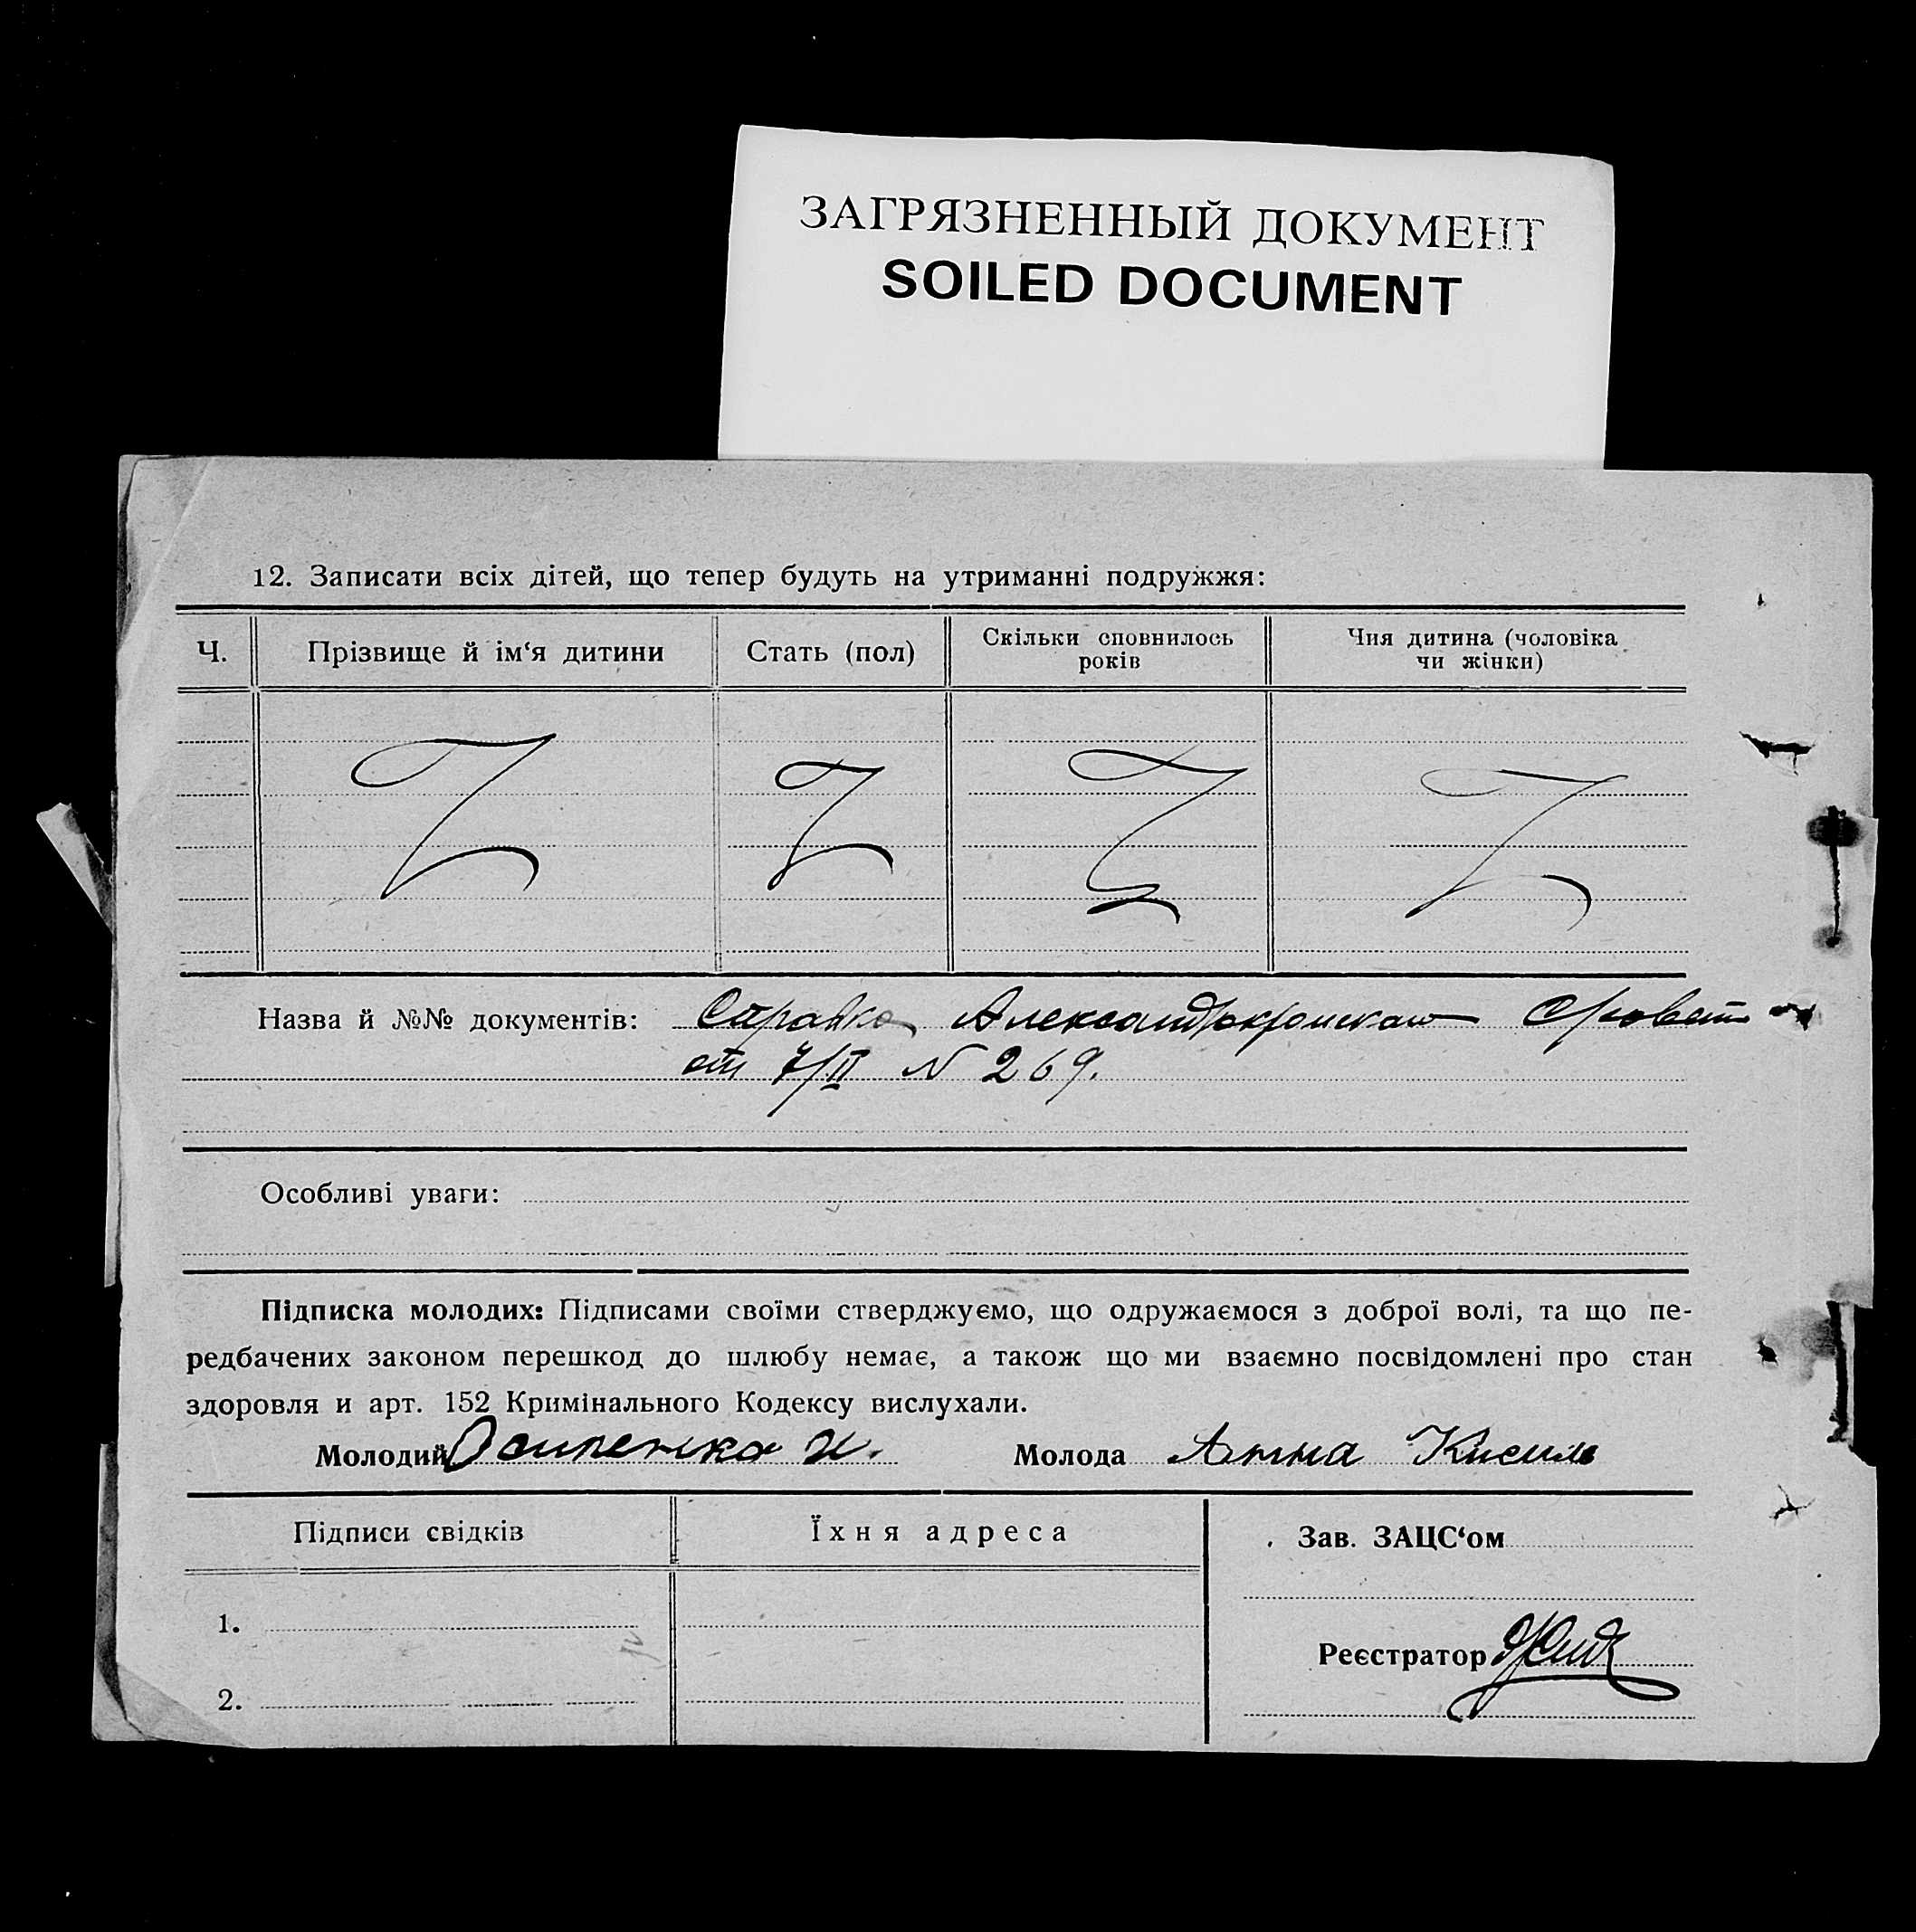 ЗАГРЯЗНЕННЫЙ ДОКУМЕНТ
SOILED DOCUMENT
12. Записати всіх дітей, що тепер будуть на утриманні подружжя:
Ч. Прізвище й ім‘я дитини Стать (пол) Скільки сповнилось років Чия дитина (чоловіка чи жінки)
Z Z Z Z
Назва й №№ документів: Справка
от 7/II N 269.
Особливі уваги:
Підписка молодих: Підписами своїми стверджуємо, що одружаємося з доброї волі, та що пе-
редбачених законом перешкод до шлюбу немає, а також що ми взаємно посвідомлені про стан
здоровля и арт. 152 Кримінального Кодексу вислухали.
Молодий Осипенко И. Молода Анна Кисиль
Підписи свідків Їхня адреса Зав. ЗАЦС‘ом
1.
Реєстратор
2.